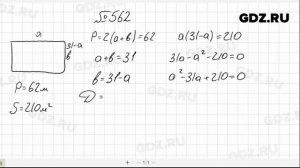 GDZ.RU
№562
a
31-a
b
P=62м
S=210м²
P=2(a+b)=62
a+b=31
b=31-a
D=
a(31-a)=210
31a-a²-210=0
a²-31a+210=0